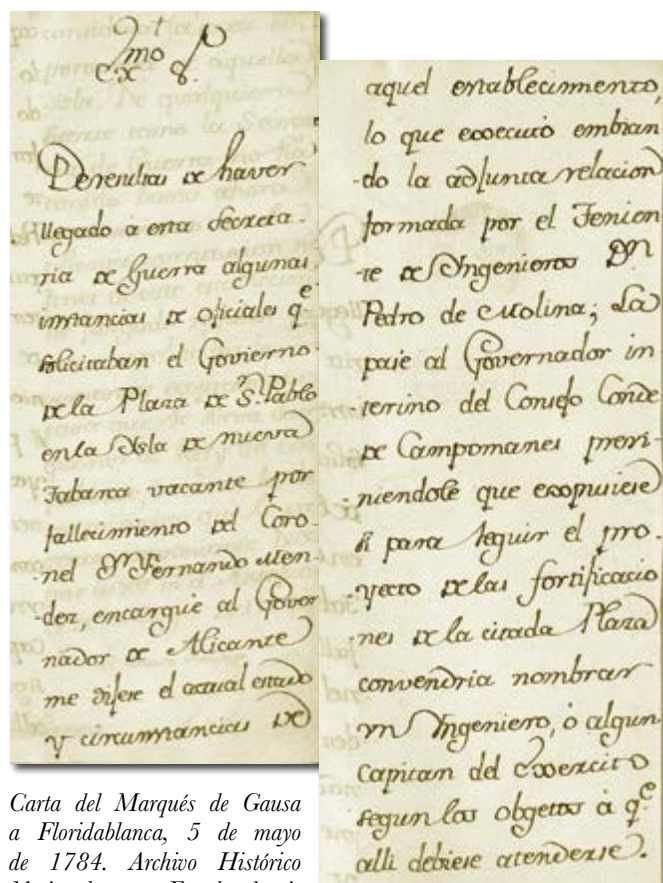 Exmo Sr
De resultas de haver
llegado á esta Secreta-
ria de Guerra algunas
instancias de oficiales qe
solicitaban el Govierno
de la Plaza de Sn. Pablo
en la Isla de nueva
Tabarca vacante por
fallecimiento del Coro-
nel Dn. Fernando Men-
dez, encargué al Gover
nador de Alicante
me dijese el actual estado
y circunstancias de
aquel establecimento,
lo que executó embian
-do la adjunta relacion
formada por el Tenien
-te de Yngenieros Dn
Pedro de Molina; La
pasé al Governador in
-terino del Consejo Conde
de Campomanes previ-
niendole que expusiese
si para seguir el pro-
-yecto de las fortificacio
nes de la citada Plaza
convendria nombrar
un Yngeniero, ó algun
Capitan del Exercito
segun los obgetos á qe
alli debiese atenderse.
Carta del Marqués de Gausa
a Floridablanca, 5 de mayo
de 1784. Archivo Histórico